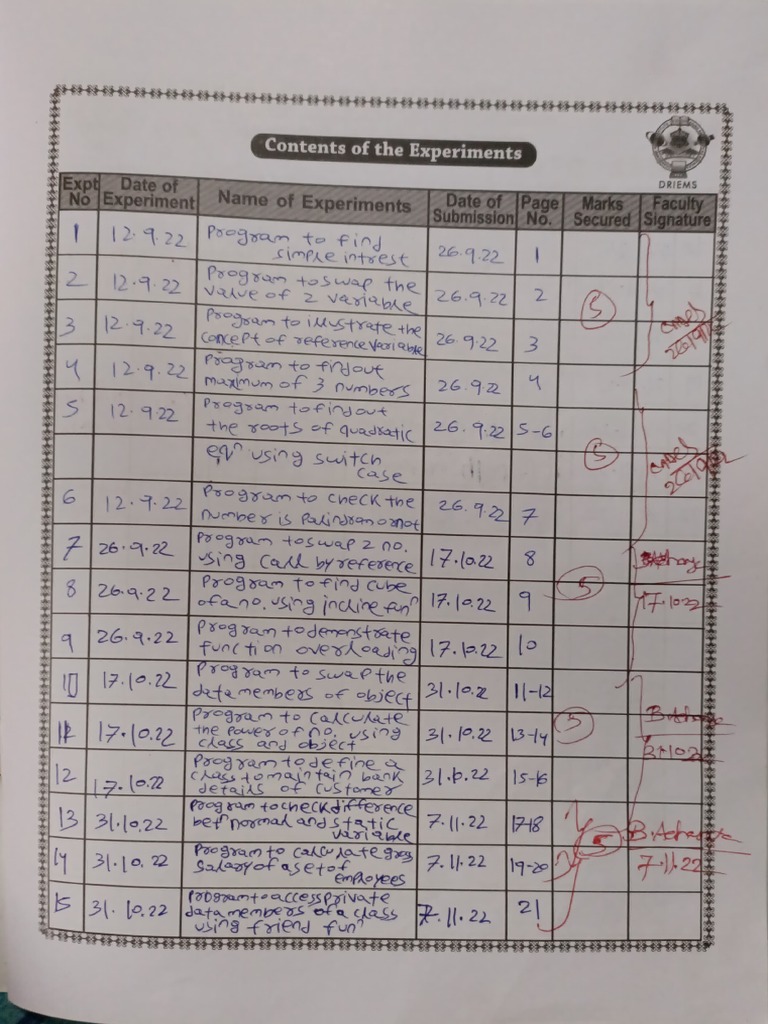 Contents of the Experiments
DRIEMS
Expt No | Date of Experiment | Name of Experiments | Date of Submission | Page No. | Marks Secured | Faculty Signature
1 12.9.22 Program to find 26.9.22 1
simple intrest
2 12.9.22 Program to swap the 26.9.22 2
value of 2 variable
5
3 12.9.22 Program to illustrate the 26.9.22 3
concept of reference variable
26/9/22
4 12.9.22 Program to findout 26.9.22 4
maximum of 3 numbers
5 12.9.22 Program to findout 26.9.22 5-6
the roots of quadratic
eqⁿ using switch
case
5
26/9/22
6 12.9.22 Program to check the 26.9.22 7
number is palindran or not
7 26.9.22 Program to swap 2 no. 17.10.22 8
using call by reference
8 26.9.22 Program to find cube 17.10.22 9 5 17.10.22
of a no. using incline funⁿ
9 26.9.22 Program to demonstrate 17.10.22 10
function overloading
10 17.10.22 Program to swap the 31.10.22 11-12
data members of object
11 17.10.22 Program to calculate 31.10.22 13-14 5
the power of no. using
class and object
31.10.22
12 17.10.22 Program to define a 31.10.22 15-16
class to maintain bank
details of customer
13 31.10.22 Program to check difference 7.11.22 17-18 5 B. Acharya
betⁿ normal and static
variable
14 31.10.22 Program to calculate gross 7.11.22 19-20 7.11.22
salary of a set of
employees
15 31.10.22 program to access private 7.11.22 21
data members of a class
using friend funⁿ